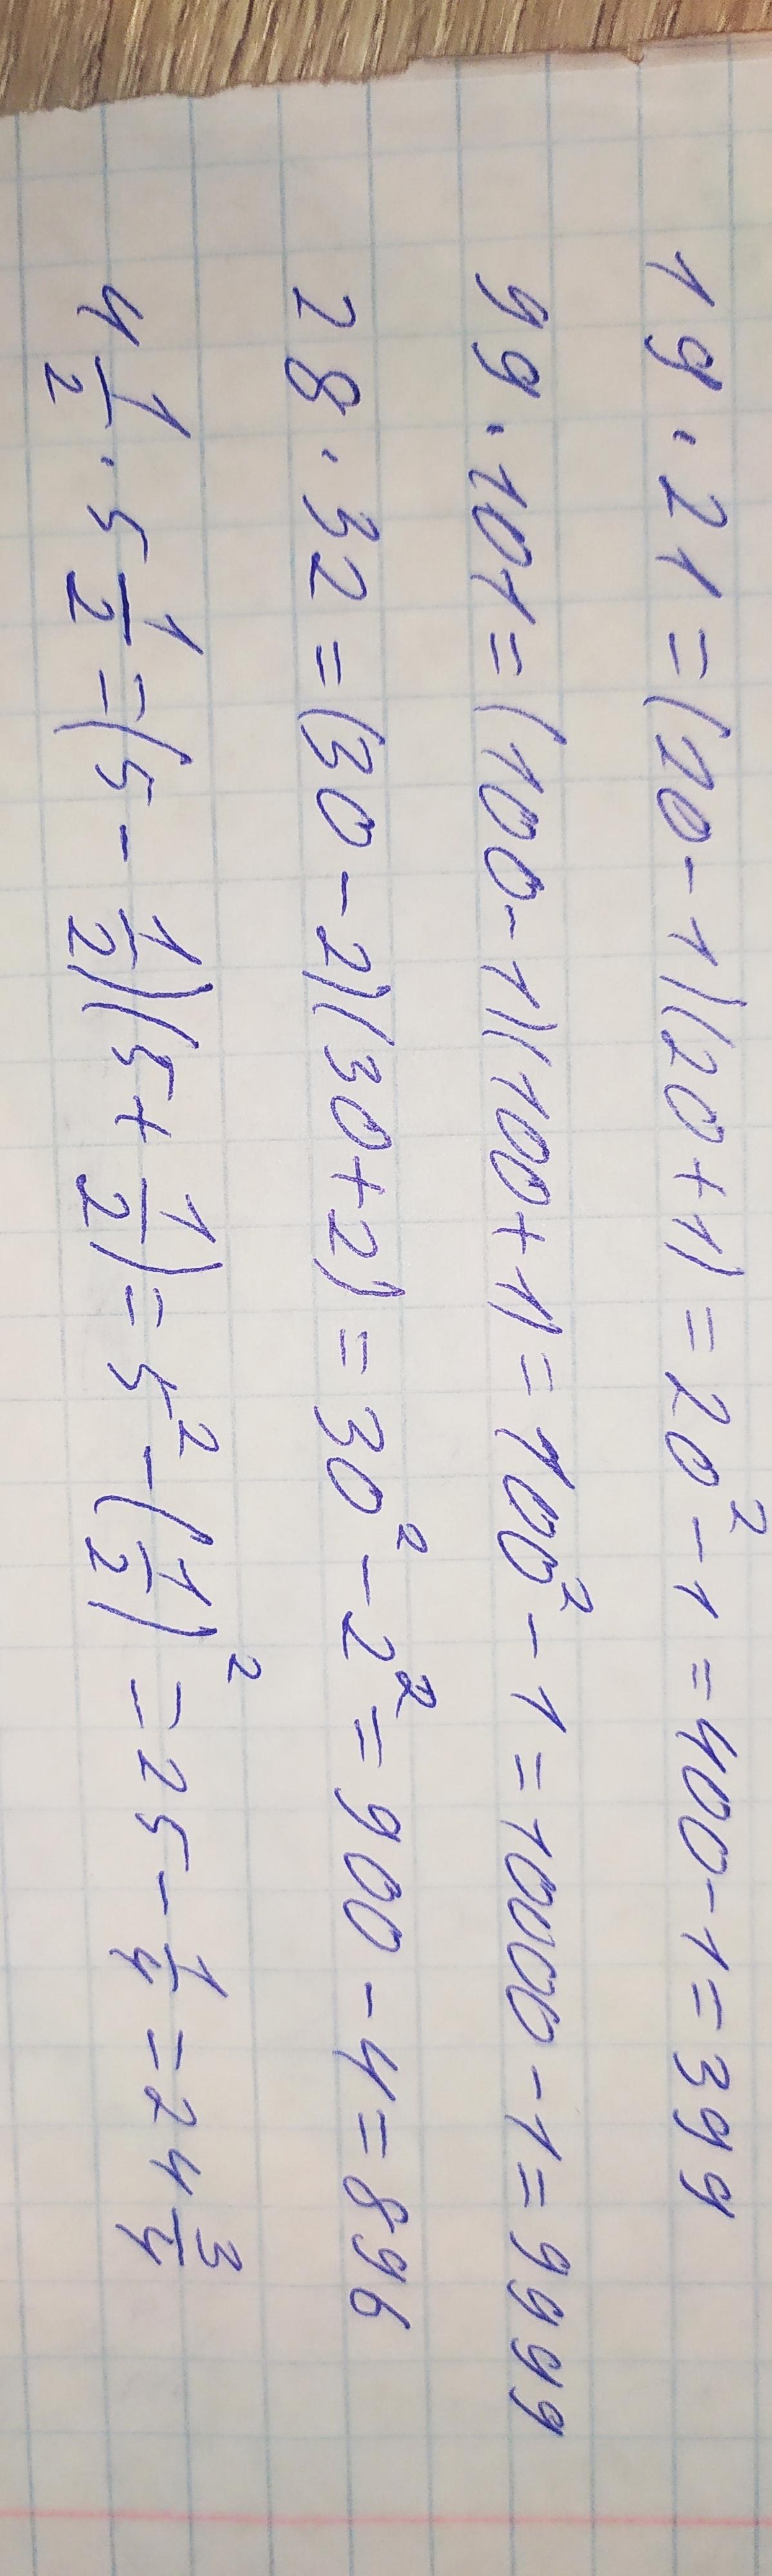 19·21=(20-1)(20+1)=20²-1=400-1=399
99·101=(100-1)(100+1)=100²-1=10000-1=9999
28·32=(30-2)(30+2)=30²-2²=900-4=896
4 1/2·5 1/2=(5-1/2)(5+1/2)=5²-(1/2)²=25-1/4=24 3/4